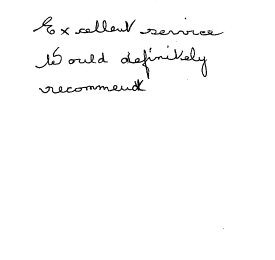 Excellent service
Would definitely
recommend